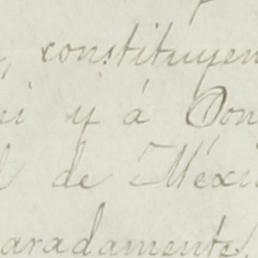 , constituyen
i y á Don
l de Méxi
aradamente,